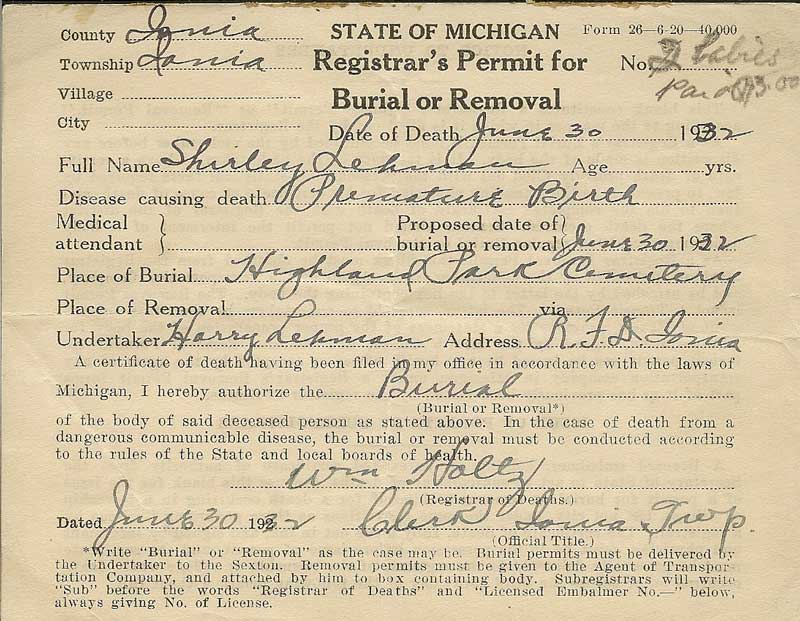 County Ionia STATE OF MICHIGAN Form 26—6-20—40,000
Township Ionia Registrar's Permit for No. 2 babies
Village Burial or Removal Paid $3.00
City Date of Death June 30 1932
Full Name Shirley Lehman Age yrs.
Disease causing death Premature Birth
Medical attendant Proposed date of burial or removal June 30 1932
Place of Burial Highland Park Cemetery
Place of Removal via
Undertaker Harry Lehman Address R.F.D. Ionia
A certificate of death having been filed in my office in accordance with the laws of
Michigan, I hereby authorize the Burial
(Burial or Removal*)
of the body of said deceased person as stated above. In the case of death from a
dangerous communicable disease, the burial or removal must be conducted according
to the rules of the State and local boards of health.
Wm Holtz
(Registrar of Deaths.)
Dated June 30 1932 Clerk Ionia Twp.
(Official Title.)
*Write "Burial" or "Removal" as the case may be. Burial permits must be delivered by
the Undertaker to the Sexton. Removal permits must be given to the Agent of Transpor-
tation Company, and attached by him to box containing body. Subregistrars will write
"Sub" before the words "Registrar of Deaths" and "Licensed Embalmer No.—" below,
always giving No. of License.